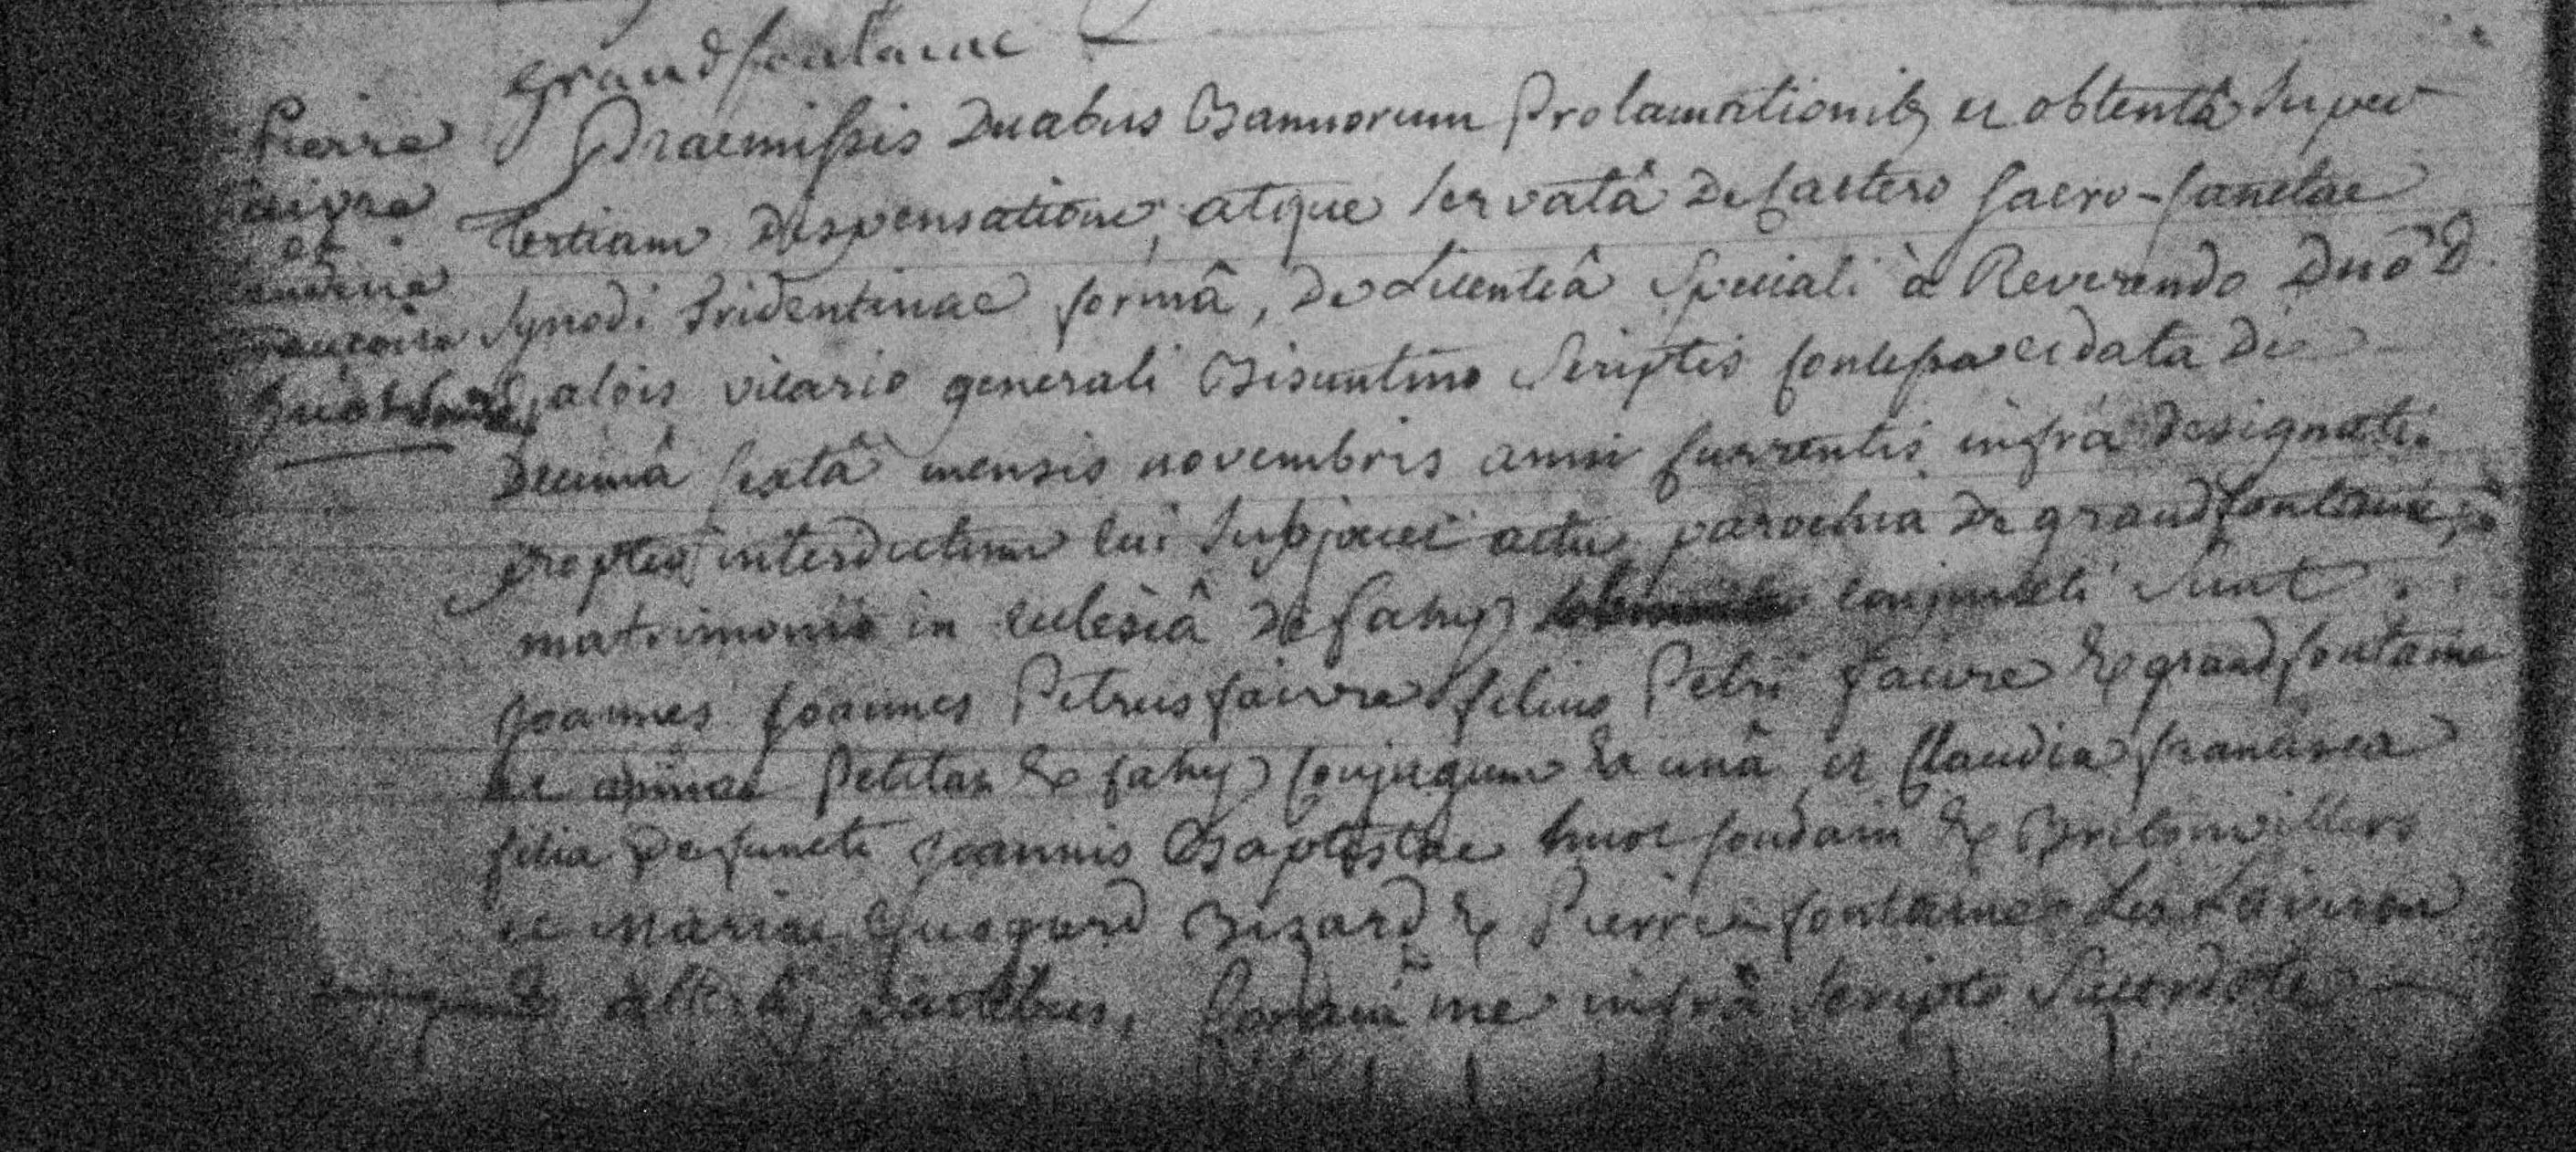 grandfontaine
Pierre
faivre
et
Praemissis Duabus Bannorum Prolamationib; et obtentâ super
Tertiam dispensatione, atque servatâ de Caetero Sacro-Sanctae
Synodi Tridentinae formâ, de Licentiâ Speciali à Reverendo Dnō D.
alois vicario generali Bisuntino Scriptis Concessa et data die
Decimâ Sextâ mensis novembris anni Currentis infrà designati
propter interdictum cui Subjacet actu parochia de grandfontaine,
matrimonio in Ecclesiâ de fahy conjuncti Sunt
Joannes Joannes Petrus faivre filius Petri faivre Ex grandfontaine
et annae Petitat Ex fahy Conjugum Ex unâ et Claudia francisca
filia Defuncti Joannis Baptistae huot Soudain Ex Bretonvillers
et Mariae Cuogard Bizard Ex Pierre fontaine
Coram me infrà Scripto Sacerdote